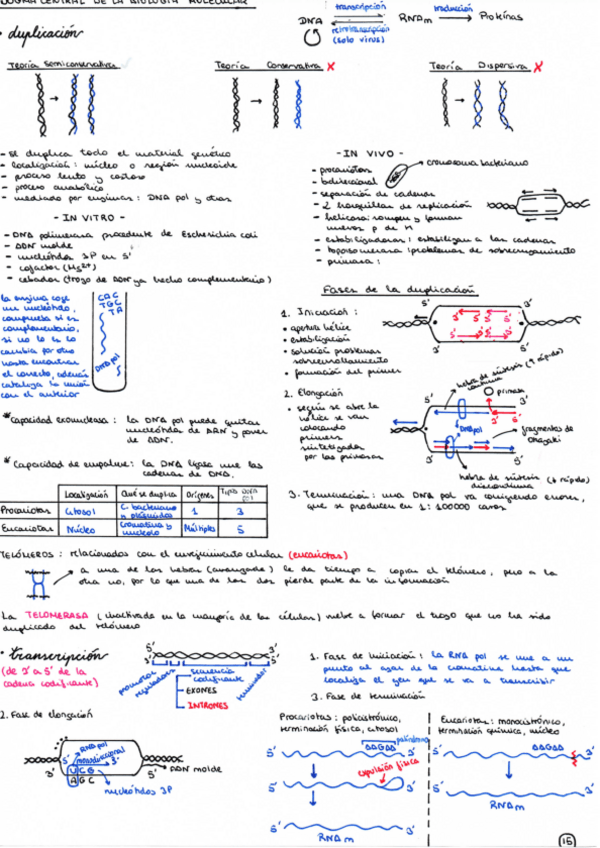 DOGMA CENTRAL DE LA BIOLOGÍA MOLECULAR
transcripción traducción
DNA RNAm Proteínas
retrotranscripción
(solo virus)
• duplicación
Teoría Semiconservativa Teoría Conservativa X Teoría Dispersiva X
- Se duplica todo el material genético
- localización: núcleo o región nucleoide
- proceso lento y costoso
- proceso anabólico
- mediado por enzimas: DNA pol y otras
- IN VITRO -
- DNA polimerasa procedente de Escherichia coli
- ADN molde
- nucleótidos 3P en 5'
- cofactor (Mg2+)
- cebador (trozo de ADN ya hecho complementario)
la enzima coge
un nucleótido,
comprueba si es
complementario,
si no lo es lo
cambia por otro
hasta encontrar
el correcto, además
cataliza la unión
con el anterior
CAC
TGC
TA
DNA pol
- IN VIVO -
cromosoma bacteriano
- procariotas
- bidireccional
- separación de cadenas
- 2 horquillas de replicación
- helicasa: rompen y forman
nuevos p de H
- estabilizadoras: estabilizan a las cadenas
- topoisomerasa: problemas de sobreenrollamiento
- primasa:
Fases de la duplicación
1. Iniciación:
• apertura hélice
• estabilización
• solución problemas
sobreenrollamiento
• formación del primer
5' 3'
3' 5'
2. Elongación
• según se abre la
hélice se van
colocando
primers
sintetizados
por las primasas
hebra de síntesis (↑ rápido)
continua
primasa
5' 3'
DNApol
fragmentos de
Okazaki
3' 5'
hebra de síntesis (↓ rápido)
discontinua
3. Terminación: una DNA pol va corrigiendo errores,
que se producen en 1:100000 casos
* Capacidad exonucleasa: la DNA pol puede quitar
nucleótidos de ARN y poner
de ADN.
* Capacidad de empalme: la DNA ligasa une las
cadenas de DNA.
Localización Qué se duplica Orígenes Tipos DNA pol
Procariotas Citosol C. bacteriano n plásmidos 1 3
Eucariotas Núcleo Cromatina y nucleolo Múltiples 5
TELÓMEROS: relacionados con el envejecimiento celular (eucariotas)
a una de las hebras (avanzada) le da tiempo a copiar el telómero, pero a la
otra no, por lo que una de las dos pierde parte de la información
La TELOMERASA (inactivada en la mayoría de las células) vuelve a formar el trozo que no ha sido
duplicado del telómero
• transcripción
(de 3' a 5' de la
cadena codificante)
5' 3'
3' 5'
promotor
reguladores
secuencia
codificante
EXONES
INTRONES
terminador
1. Fase de Iniciación: la RNA pol se une a un
punto al azar de la cromatina hasta que
localiza el gen que se va a transcribir
3. Fase de terminación
2. Fase de elongación
RNA pol
unidireccional
5' 3'
UCG
AGC
5' ADN molde
nucleótidos 3P
Procariotas: policistrónico,
terminación física, citosol
palíndromo
AAGAA
5' 3'
expulsión física
5' 3'
5' 3'
RNAm
Eucariotas: monocistrónico,
terminación química, núcleo
AAGAA
5' 3'
5' 3'
RNAm
15